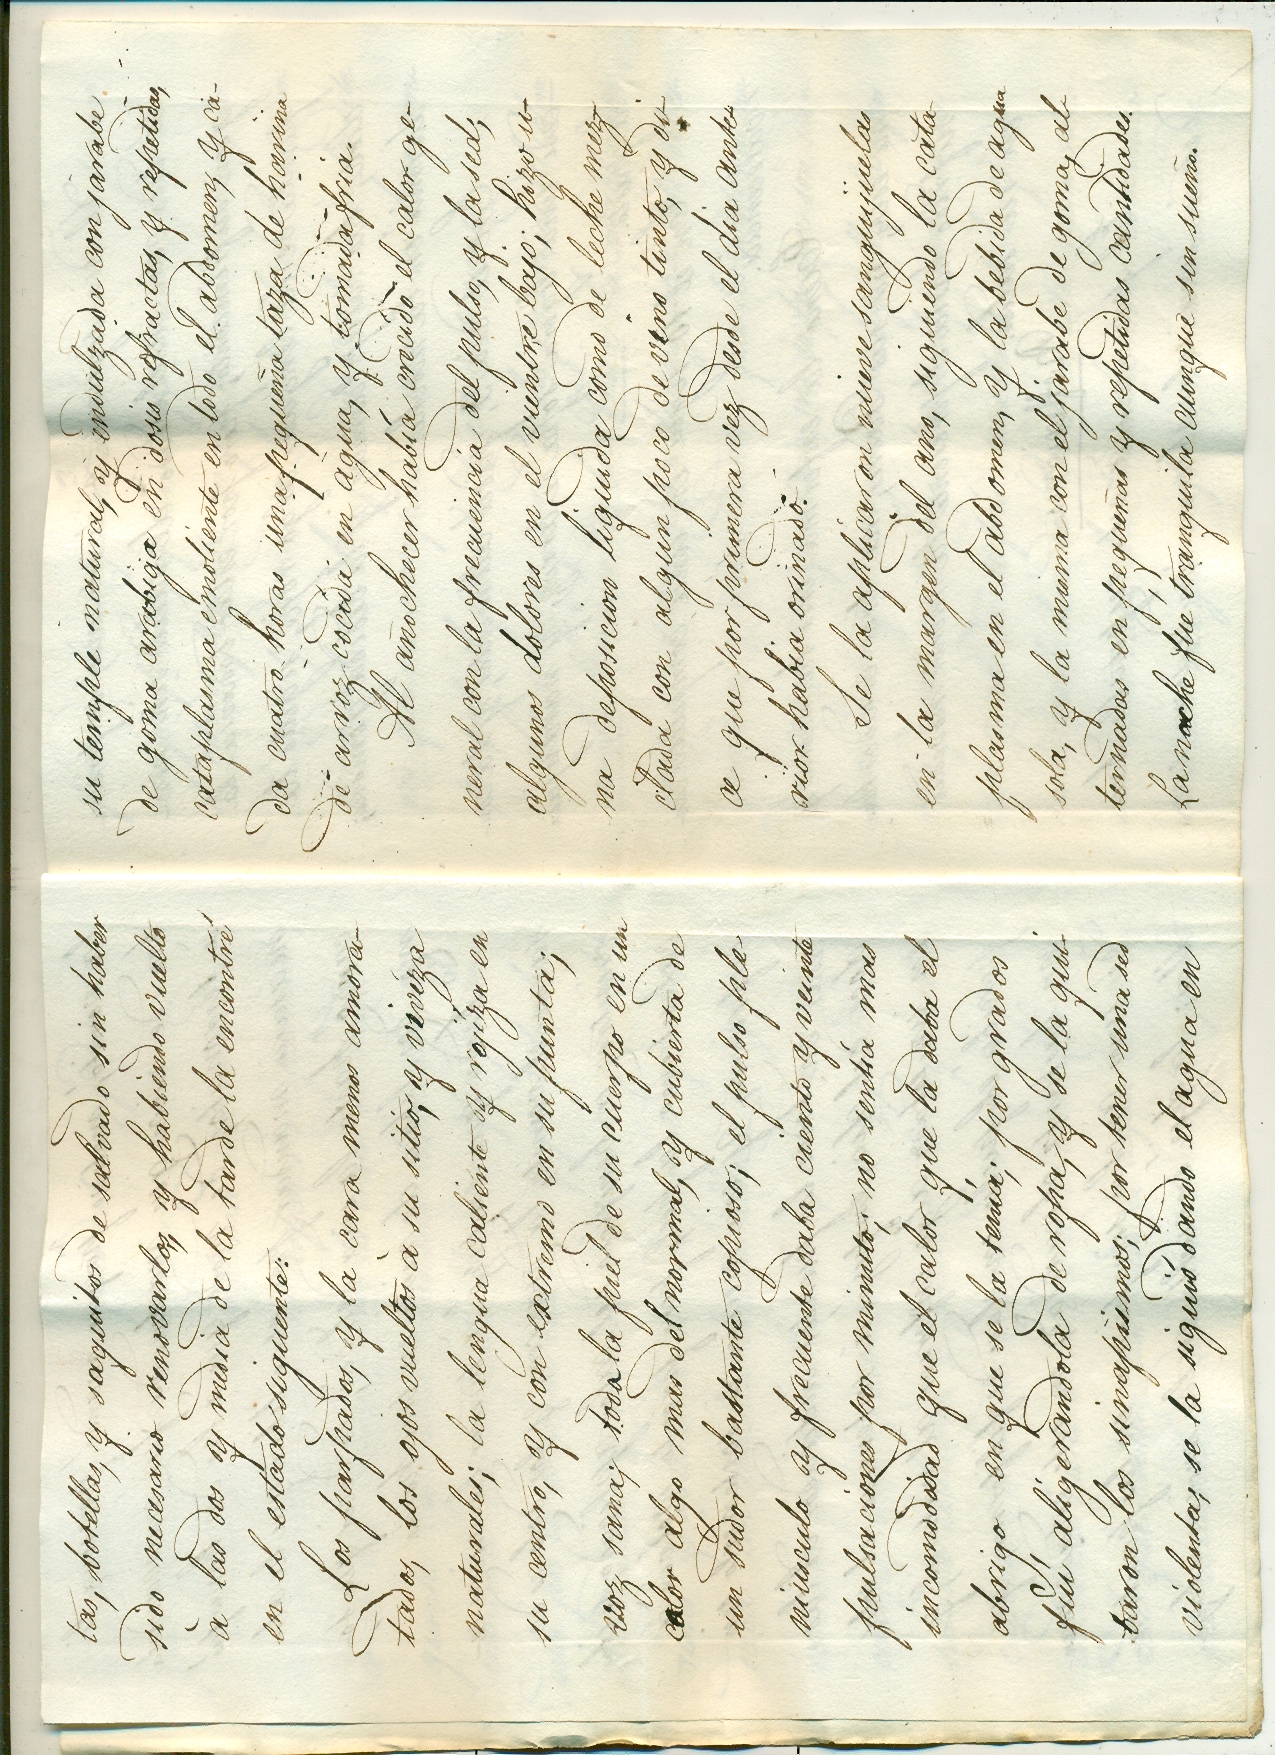 tas, botellas, y saquitos de salvado sin haber
sido necesario renovarlos, y habiendo vuelto
à las dos y media de la tarde la encontré
en el estado siguiente:
Los parpados, y la cara menos amora-
tados, los ojos vueltos à su sitio, y viveza
naturales; la lengua caliente y rojiza en
su centro, y con extremo en su punta;
voz sana; toda la piel de su cuerpo en un
calor algo mas del normal, y cubierta de
un sudor bastante copioso; el pulso ple-
niusculo y frecuente daba ciento y veinte
pulsaciones por minuto; no sentia mas
incomodidad que el calor que la daba el
abrigo en que se la tenia; por grados
fui aligerandola de ropa, y se la qui-
taron los sinapismos; por tener una sed
violenta, se la siguió dando el agua en
su temple natural, y endulzada con jarabe
de goma arabiga en dosis refractas, y repetidas,
cataplasma emoliente en todo el abdomen, y ca-
da cuatro horas una pequeña taza de harina
de arroz cocida en agua, y tomada fria.
Al anochecer habia crecido el calor ge-
neral con la frecuencia del pulso, y la sed;
algunos dolores en el vientre bajo; hizo u-
na deposicion liquida como de leche mez-
clada con algun poco de vino tinto, y di-
ce que por primera vez desde el dia ante-
rior habia orinado.
Se la aplicaron nueve sanguijuelas
en la margen del ano, siguiendo la cata-
plasma en el abdomen, y la bebida de agua
sola, y la misma con el jarabe de goma, al-
ternadas en pequeñas y repetidas cantidades.
La noche fué tranquila aunque sin sueño.